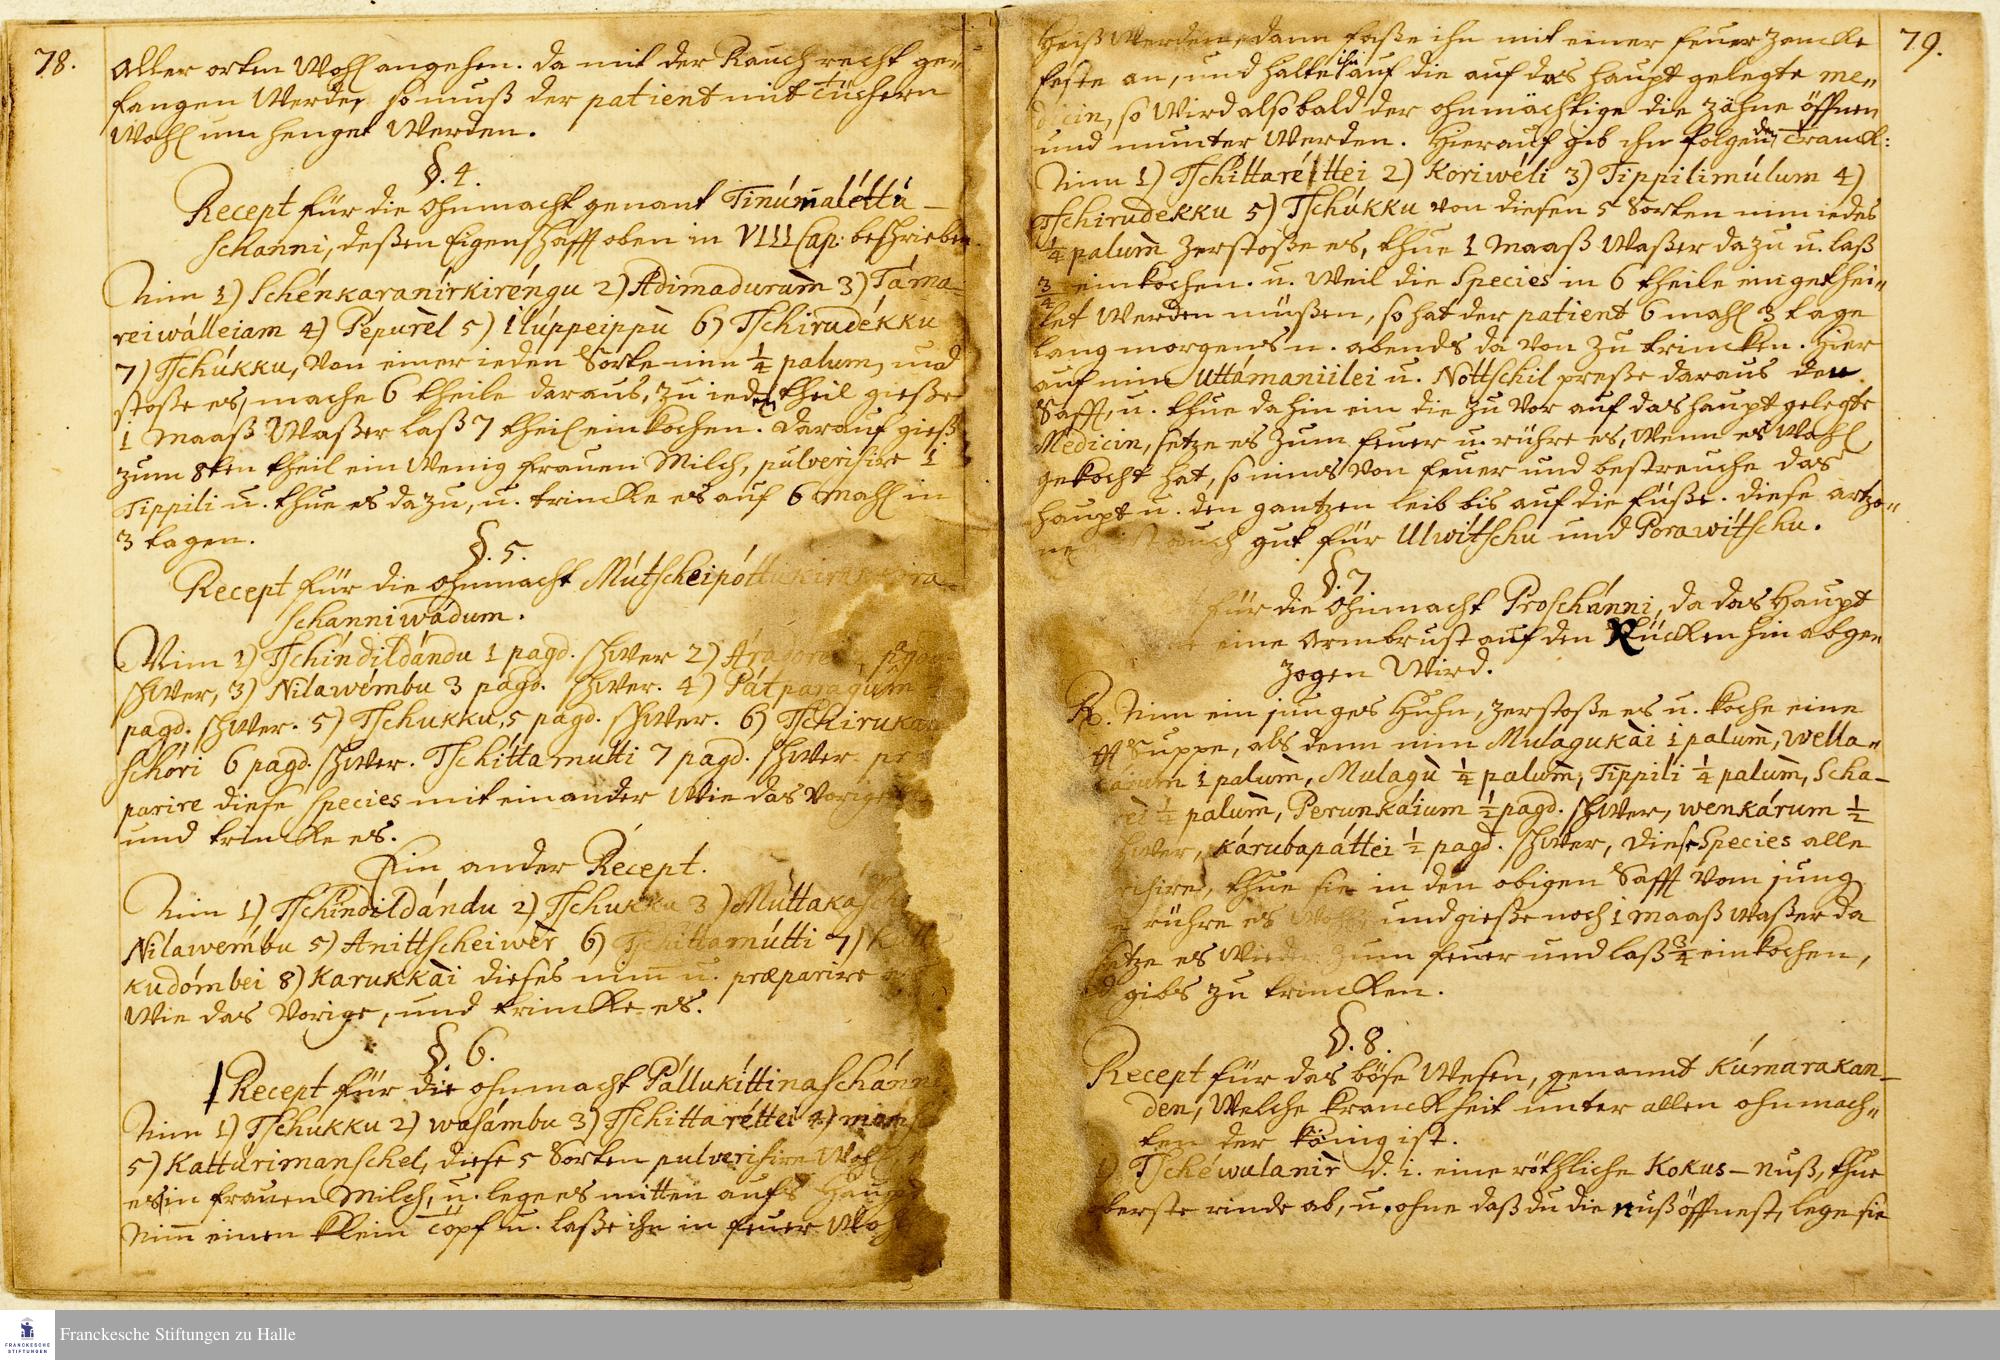 78.
aller orten wohl angehen. da mit der Rauch recht ge-
fangen werde, so muß der patient mit Tüchern
wohl um henget werden.
§. 4.
Recept für die Ohnmacht genant Tinúmaléttú-
schanni, deßen Eigenschafft oben in VIII Cap: beschrieben.
Nim 1) Schénkaranírkiréngu 2) Adimadurum̃ 3) Táma-
reiwálleiam 4) Pépurèl 5) ilúppeippù 6) Tschirudékku
7) Tschúkku, von einer ieden Sorte nim ¼ palum, und
stoße es, mache 6 theile daraus, zu iedem theil gieße
1 Maaß Waßer laß 7 theil einkochen. Darauf gieß
zum 8ten theil ein wenig frauen Milch, pulverisire 1
Tippili u. thue es dazu, u. trincke es auf 6 mahl in
3 tagen.
§. 5.
Recept für die Ohnmacht
schanniwádum.
Nim 1) Tschíndildándu 1 pagd. schwer 2)
schwer, 3) Nilawémbu 3 pagd. schwer. 4) Pátparagum
pagd. schwer. 5) Tschukku, 5 pagd. schwer. 6)
schóri 6 pagd. schwer. Tschíttamutti 7 pagd. schwer præ-
parire diese Species mit einander wie das vorige
und trincke es.
Ein ander Recept.
Nim 1) Tschíndildándu 2) Tschukku 3)
Nilawémbu 5) Anittscheiwèr 6) Tschittamútti 7)
kudómbei 8) Karukkài dieses nim̄ u. præparire
wie das vorige, und trincke es.
§ 6.
Recept für die ohnmacht Pállukíttinaschánni
Nim 1) Tschukku 2) wasámbu 3) Tschittaréttei 4)
5) Kattúrimanschel, diese 5 Sorten pulverisire wohl,
es in frauen Milch, u. lege es mitten aufs Haupt
Nim̄ einen klein Topf u. laße ihn in feuer wohl
79.
heiß werden, dann faße ihn mit einer feuer zancke
feste an, und halte ihn auf die auf das haupt gelegte me-
dicin, so wird alsobald der ohnmächtige die zähne öffnen
und munter werden. Hierauf gib ihn folgenden Tranck:
Nim 1) Tschittaréttei 2) Koriwéli 3) Tippilimúlum 4)
Tschirudekku 5) Tschúkku von diesen 5 Sorten nim iedes
¼ palum̃ zerstoße es, thue 1 Maaß Waßer dazu u. laß
¾ einkochen. u. weil die Species in 6 theile eingethei-
let werden müßen, so hat der patient 6 mahl 3 tage
lang morgens u. abends da von zu trincken. Hier
auf nim Uttámaniilei u. Nottschil preße daraus den
Safft, u. thue dahin ein die zu vor auf das haupt gelegte
Medicin, setze es zum feuer u. rühre es, wenn es wohl
gekocht hat, so nims von feuer und bestreiche das
haupt u. den gantzen leib bis auf die füße. diese artze-
ney ist auch gut für Ulwítschu und Porawítschu.
§. 7.
für die Ohnmacht Proschánni, da das Haupt
eine Armbrust auf den Rücken hin abge-
zogen wird.
Rx. Nim ein junges Huhn, zerstoße es u. koche eine
Suppe, als denn nim Mulagukài 1 palum̃, wella-
1 palum̃, Mulagù ¼ palum̃, Tippili ¼ palum̃, Scha-
½ palum̃, Perunkáium ½ pagd. schwer, wenkárum ½
schwer, kárubapáttei ½ pagd. schwer, diese Species alle
thue sie in den obigen Safft vom jung
rühre es wohl und gieße noch 1 maaß waßer da
setze es wieder zum feuer und laß ¾ einkochen,
gibs zu trincken.
§. 8.
Recept für das böse Wesen, genannt Kúmarakan-
den, welche kranckheit unter allen ohnmach-
ten der könig ist.
1) Tschéwulanìr d. i. eine röthliche Kokus-nuß, thue
oberste rinde ab, u. ohne daß du die nuß öffnest, lege sie
FRANCKESCHE
STIFTUNGEN
Franckesche Stiftungen zu Halle